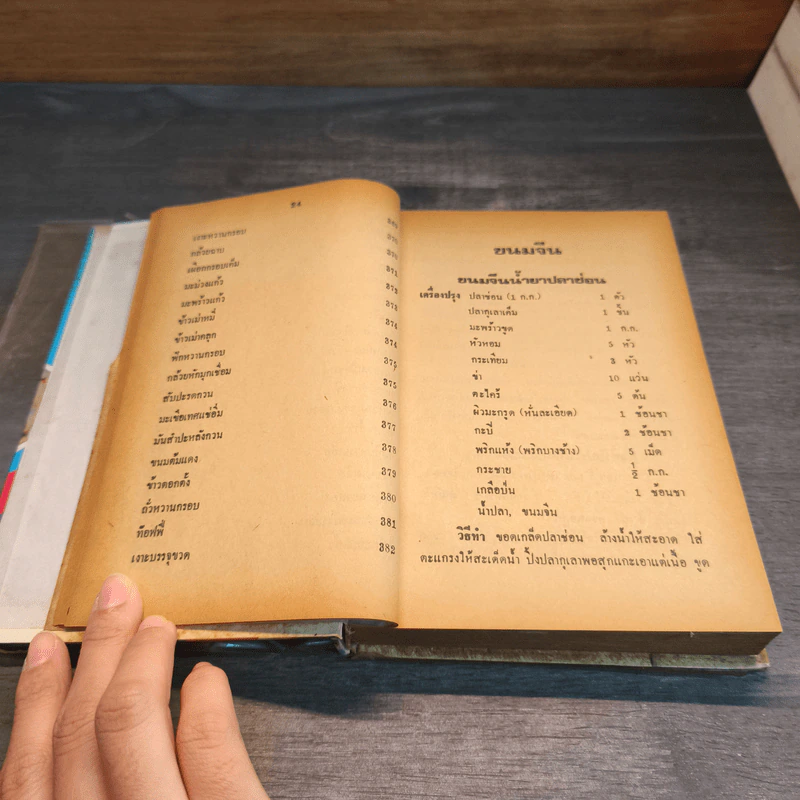 24
เงาะหวานกรอบ 369
กล้วยฉาบ 370
เผือกกรอบเค็ม 370
มะม่วงแก้ว 371
มะพร้าวแก้ว 372
ข้าวเม่าหมี่ 373
ข้าวเม่าคลุก 374
ฟักหวานกรอบ 374
กล้วยหักมุกเชื่อม 375
สับปะรดกวน 375
มะเขือเทศแช่อิ่ม 376
มันสำปะหลังกวน 377
ขนมต้มแดง 378
ข้าวตอกตั้ง 379
ถั่วหวานกรอบ 380
ท๊อฟฟี่ 381
เงาะบรรจุขวด 382
ขนมจีน
ขนมจีนน้ำยาปลาช่อน
เครื่องปรุง ปลาช่อน (1 ก.ก.) 1 ตัว
ปลากุเลาเค็ม 1 ชิ้น
มะพร้าวขูด 1 ก.ก.
หัวหอม 5 หัว
กระเทียม 3 หัว
ข่า 10 แว่น
ตะไคร้ 5 ต้น
ผิวมะกรูด (หั่นละเอียด) 1 ช้อนชา
กะปิ 2 ช้อนชา
พริกแห้ง (พริกบางช้าง) 5 เม็ด
กระชาย ½ ก.ก.
เกลือป่น 1 ช้อนชา
น้ำปลา, ขนมจีน
วิธีทำ ขอดเกล็ดปลาช่อน ล้างน้ำให้สะอาด ใส่
ตะแกรงให้สะเด็ดน้ำ ปิ้งปลากุเลาพอสุกแกะเอาแต่เนื้อ ขูด